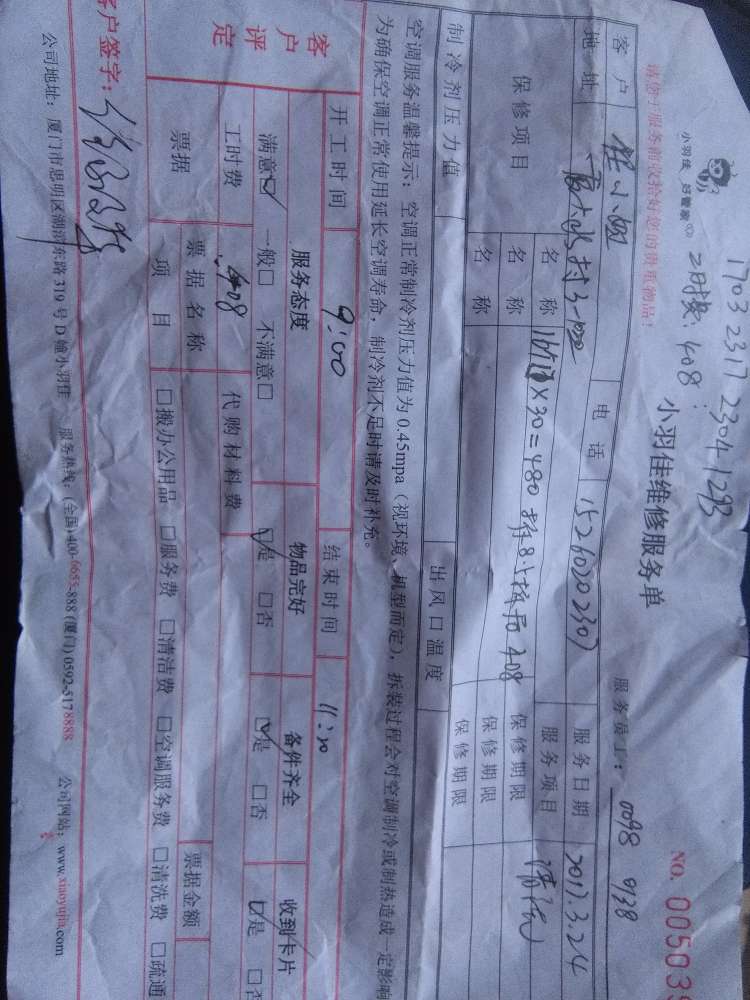 1703 2317 23041293
工时费：408
小羽佳 好管家
小羽佳维修服务单
NO. 00503
请您于服务前收拾好您的贵重物品！
服务员工： 0098 9138
客户
电话 15260202307
服务日期 2017.3.24
地址
服务项目 清洗
保修项目
名称 ×30=480 打8.5折后408 保修期限
名称 保修期限
名称 保修期限
制冷剂压力值
出风口温度
空调服务温馨提示：空调正常制冷剂压力值为0.45mpa（视环境、机型而定），拆装过程会对空调制冷或制热造成一定影响
为确保空调正常使用延长空调寿命，制冷剂不足时请及时补充。
开工时间 9:00
结束时间 11:30
客户评定
服务态度 物品完好 备件齐全 收到卡片
满意☑ 一般□ 不满意□ ☑是 □否 ☑是 □否 ☑是 □否
工时费 408 代购材料费
票据
票据名称 票据金额
项目 □搬办公用品 □服务费 □清洁费 □空调服务费 □清洗费 □疏通
客户签字：
公司地址：厦门市思明区湖滨东路319号D幢小羽佳 服务热线：(全国)400-6655-888 (厦门)0592-5178888 公司网站：www.xiaoyujia.com